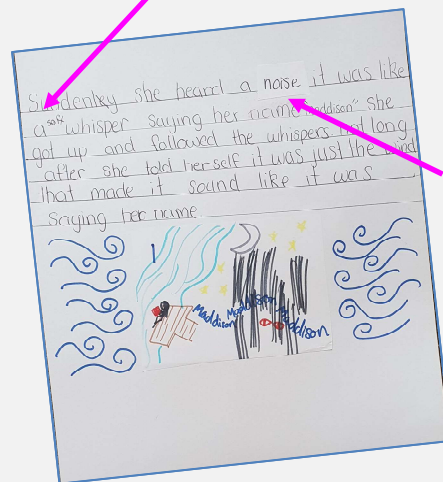 she heard a noise it was like
a soft whisper saying her name "Maddison" she
got up and followed the whispers not long
after she told her self it was just the wind
that made it sound like it was
saying her name
Maddison Maddison Maddison